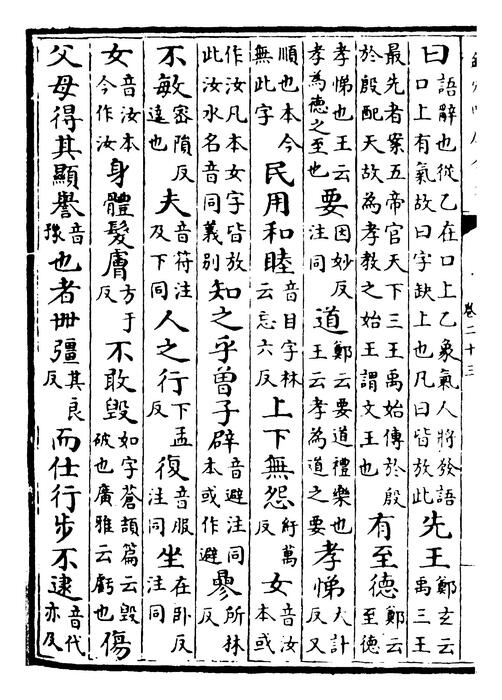 曰語辭也從乙在口上乙象氣人將發語口上有氣故曰字缺上也凡曰皆放此先王鄭玄云禹三王
最先者案五帝官天下三王禹始傳於殷於殷配天故為孝教之始王謂文王也有至德鄭云至德
孝悌也王云孝為德之至也要因妙反注同道鄭云要道禮樂也王云孝為道之要孝悌大計反又
順也本今無此字民用和睦音目字林云忘六反上下無怨紆萬反女音汝本或
作汝凡本女字皆放此汝水名音同義別知之乎曾子辟音避注同本或作避參所林反
不敏密隕反達也夫音符注及下同人之行下孟反復音服注同坐在臥反注同
女音汝本今作汝身體髮膚方于反不敢毀如字蒼頡篇云毀破也廣雅云虧也傷
父母得其顯譽音豫也者丗彊其良反而仕行步不逮音代亦及
卷二十三